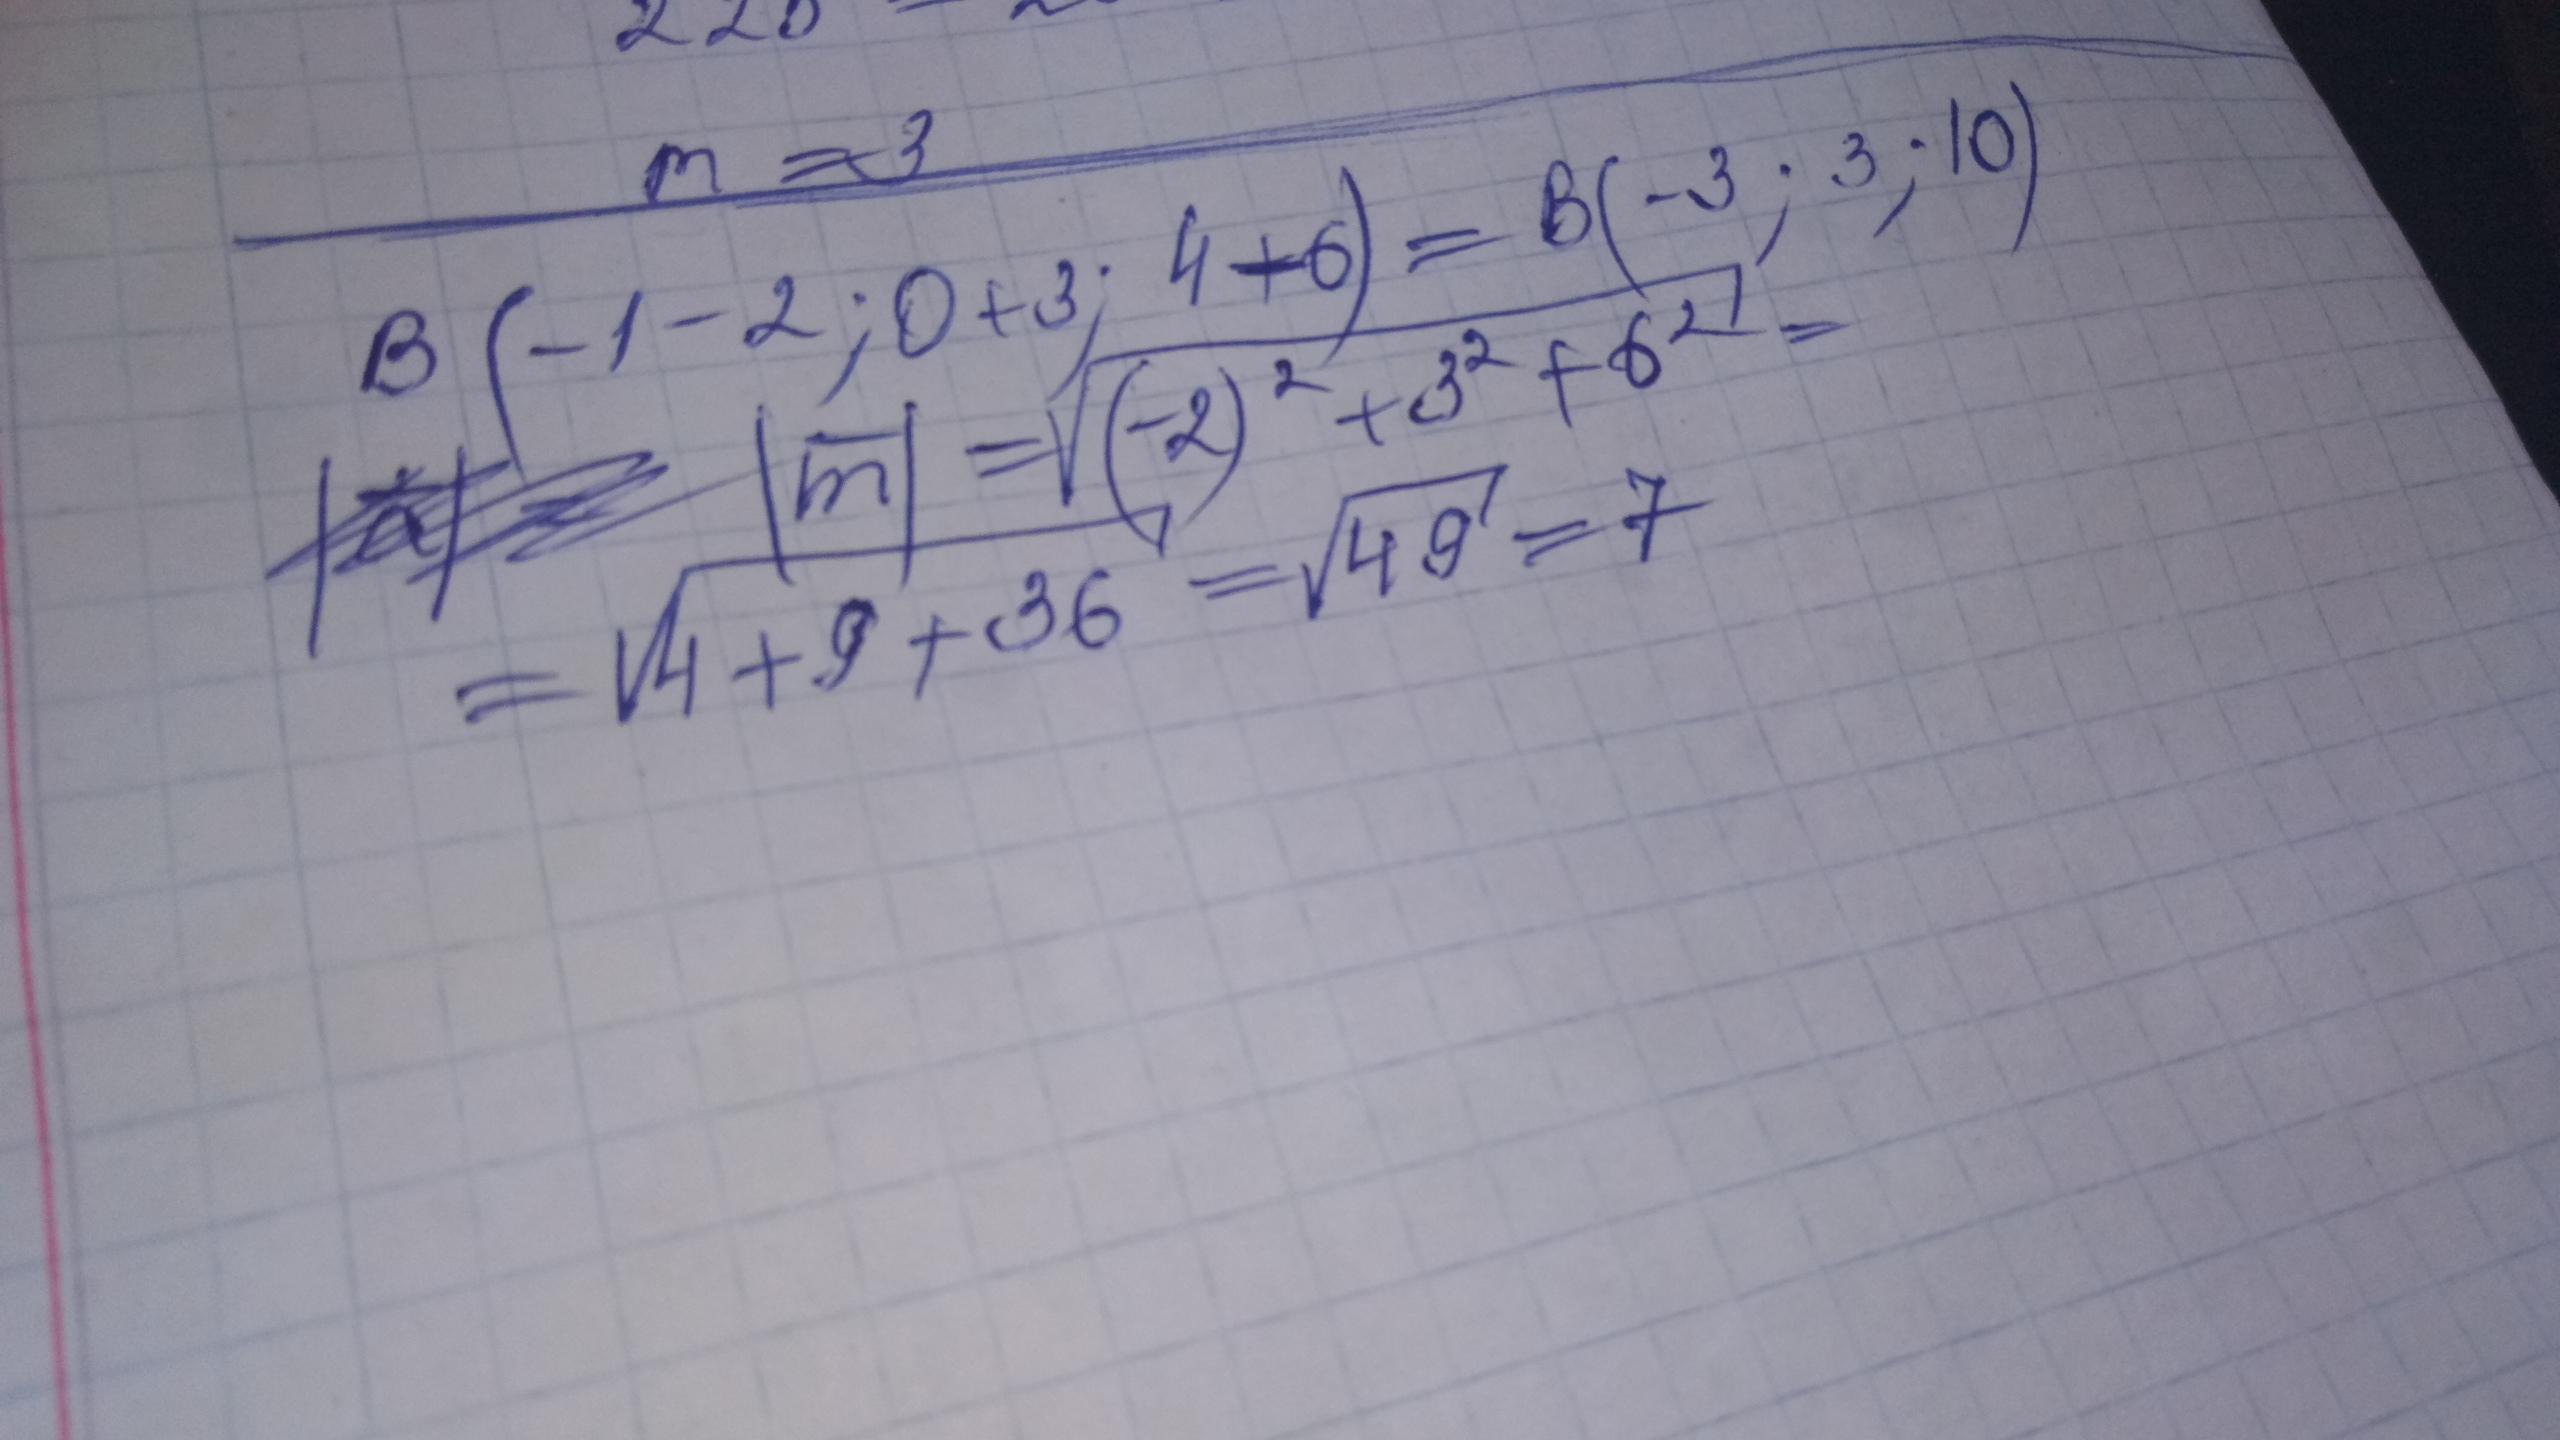 m = 3
B (-1-2; 0+3; 4+6) = B(-3; 3; 10)
|m̅| = √((-2)² + 3² + 6²) =
= √(4+9+36) = √49 = 7